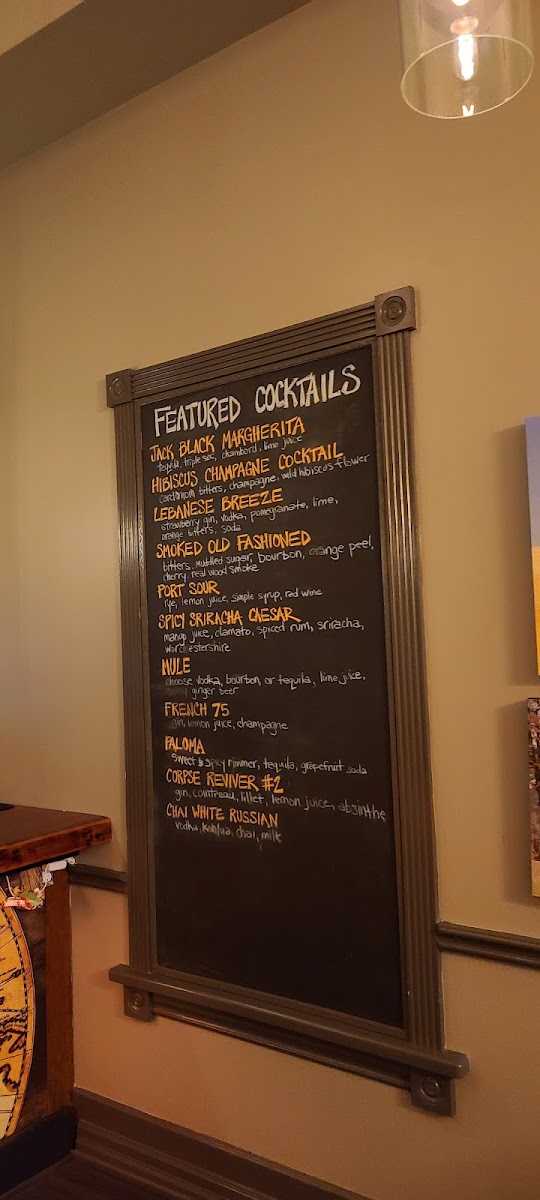 FEATURED COCKTAILS
JACK BLACK MARGHERITA
tequila, triple sec, chambord, lime juice
HIBISCUS CHAMPAGNE COCKTAIL
cardamom bitters, champagne, wild hibiscus flower
LEBANESE BREEZE
strawberry gin, vodka, pomegranate, lime,
orange bitters, soda
SMOKED OLD FASHIONED
bitters, muddled sugar, bourbon, orange peel,
cherry, real wood smoke
PORT SOUR
rye, lemon juice, simple syrup, red wine
SPICY SRIRACHA CAESAR
mango juice, clamato, spiced rum, sriracha,
worcestershire
MULE
choose vodka, bourbon, or tequila, lime juice,
ginger beer
FRENCH 75
gin, lemon juice, champagne
PALOMA
sweet & spicy rimmer, tequila, grapefruit soda
CORPSE REVIVER #2
gin, cointreau, lillet, lemon juice, absinthe
CHAI WHITE RUSSIAN
vodka, kahlua, chai, milk